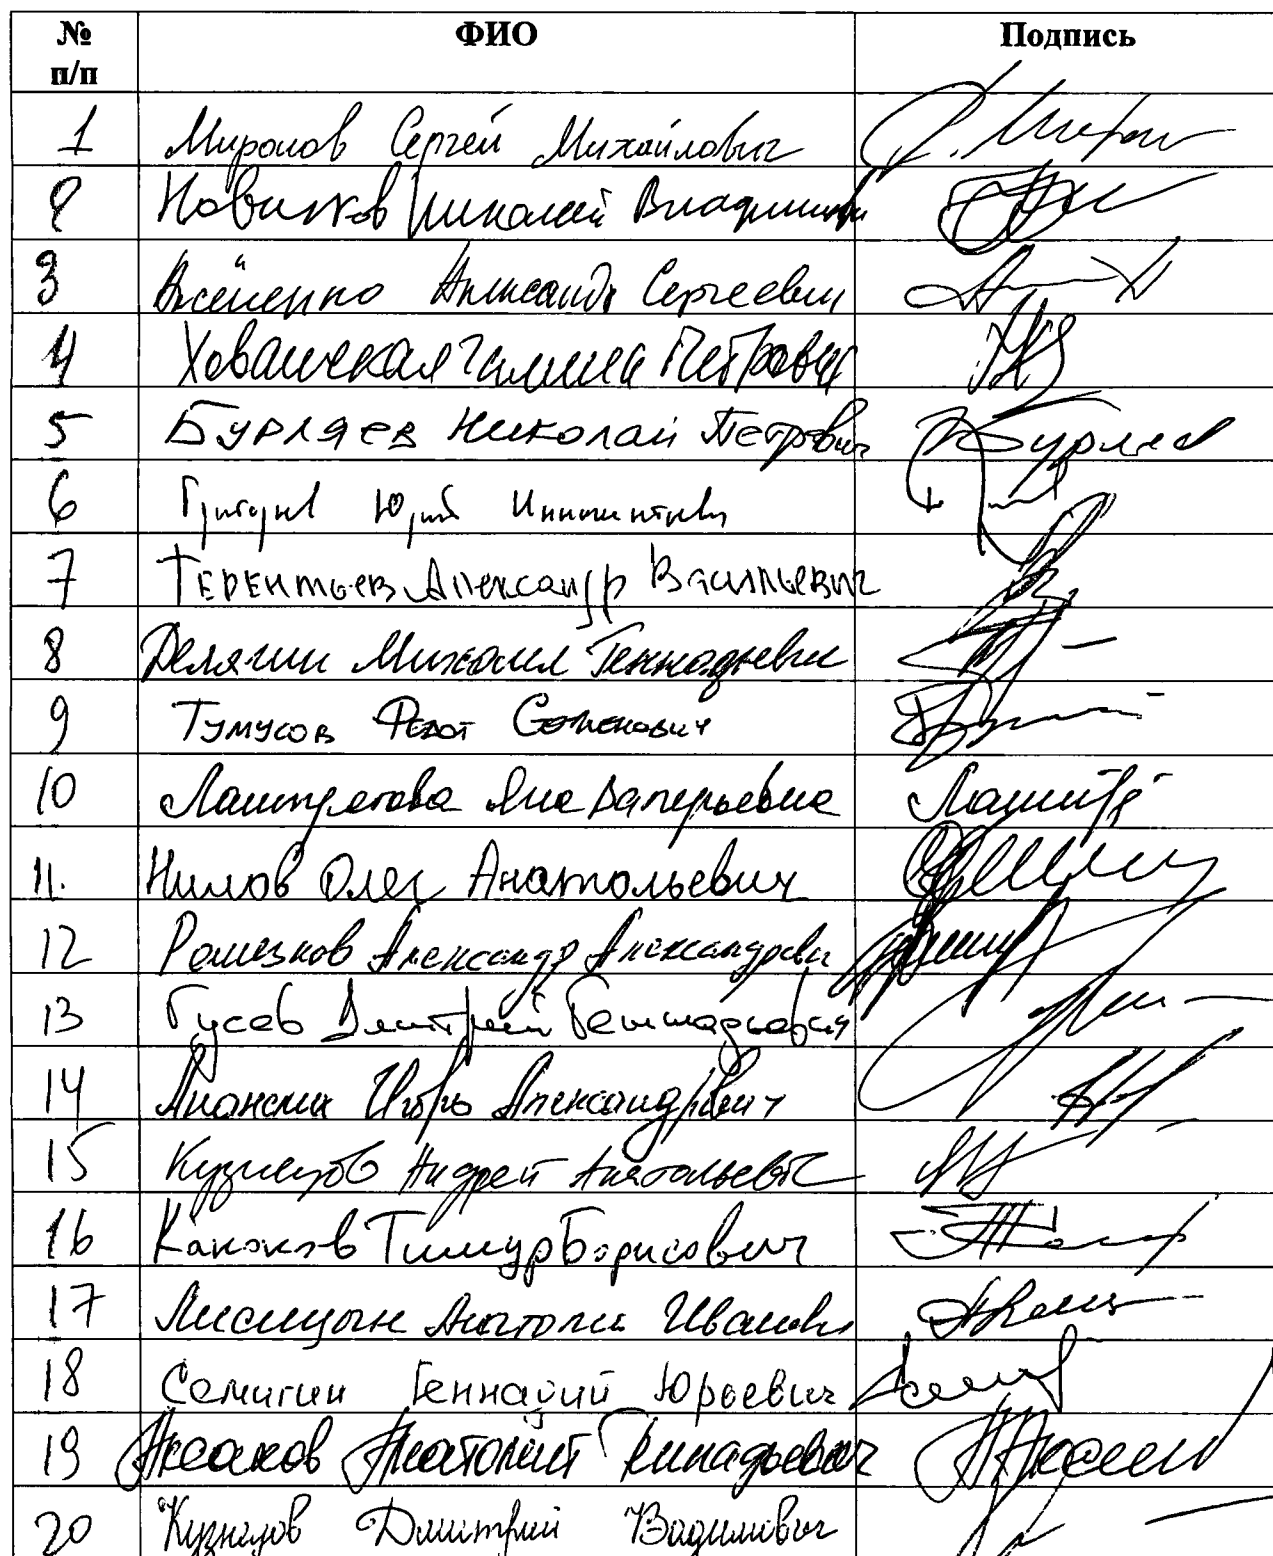 № п/п ФИО Подпись
1 Миронов Сергей Михайлович
2 Новиков Николай Владимирович
3 Аксёненко Александр Сергеевич
4 Хованская Галина Петровна
5 Бурляев Николай Петрович Бурляев
6 Григорьев Юрий Иннокентьевич
7 Терентьев Александр Васильевич
8 Делягин Михаил Геннадьевич
9 Тумусов Федот Семенович
10 Лантратова Яна Валерьевна
11. Нилов Олег Анатольевич
12 Ремезков Александр Александрович
13 Гусев Дмитрий Геннадьевич
14 Ананских Игорь Александрович
15 Кузнецов Андрей Анатольевич
16 Каноков Тимур Борисович
17 Лисицын Анатолий Иванович
18 Семигин Геннадий Юрьевич
19 Аксаков Анатолий Геннадьевич
20 Кузнецов Дмитрий Вадимович